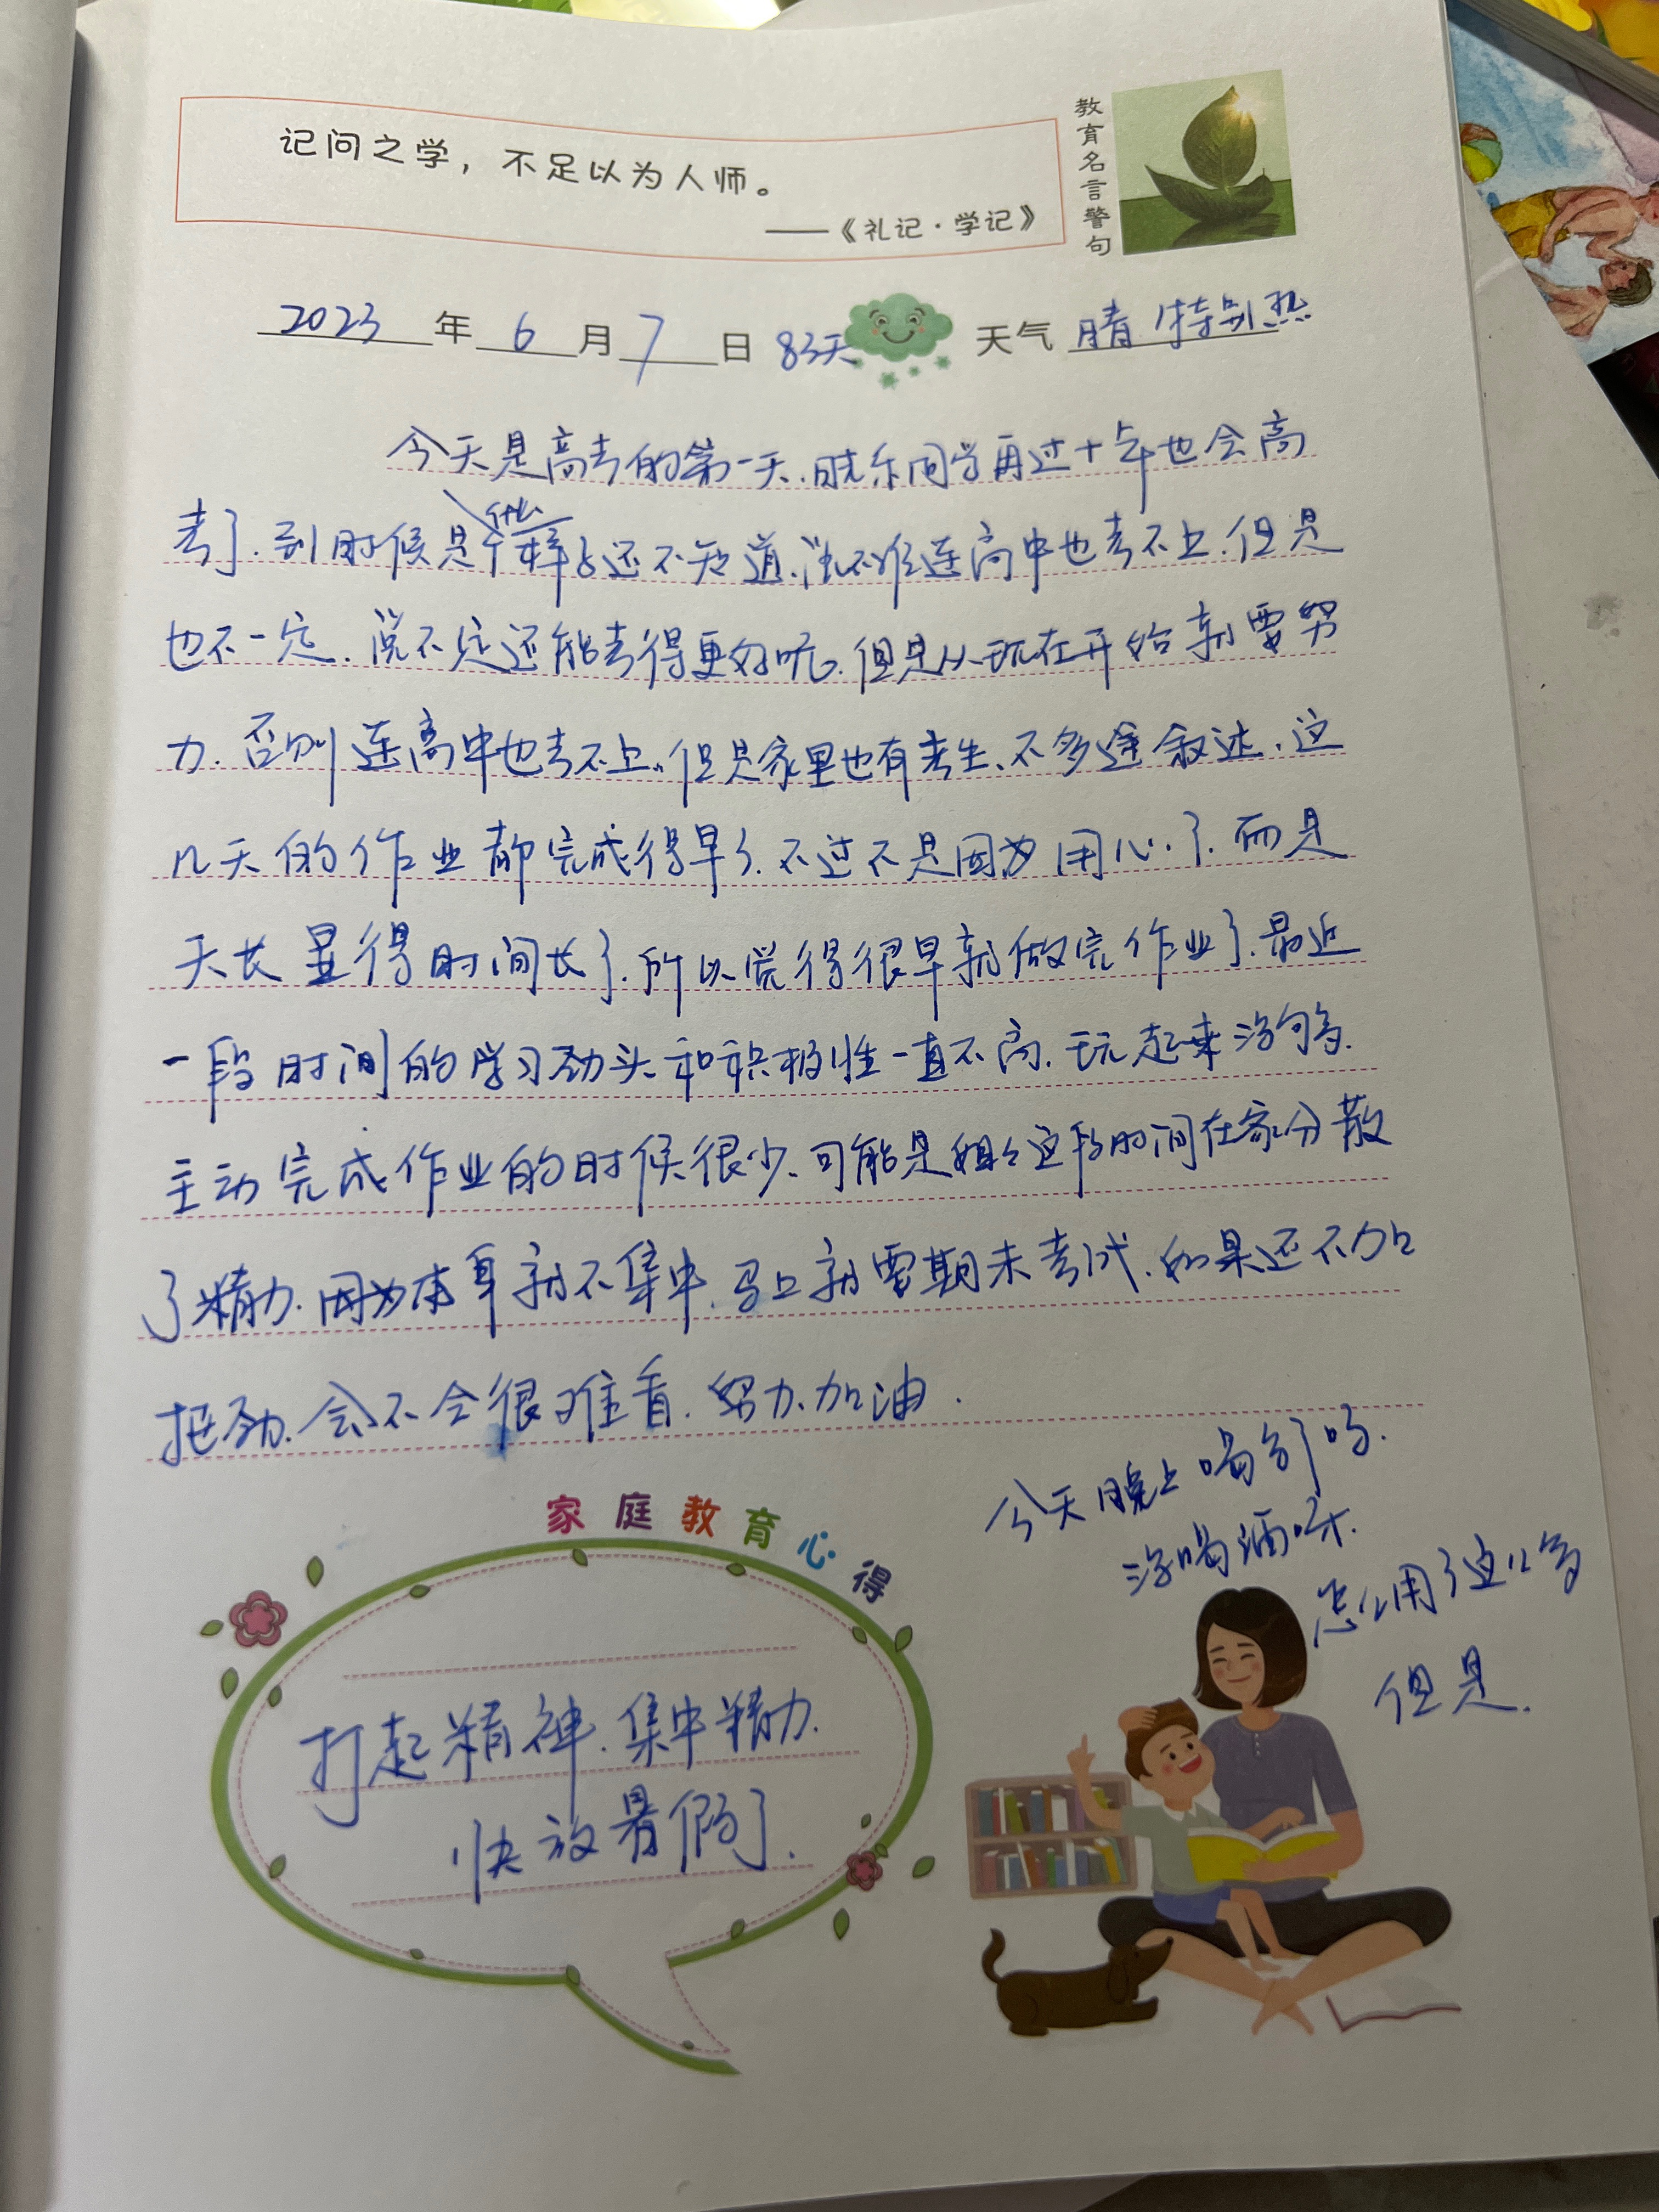 记问之学，不足以为人师。
——《礼记·学记》
教育名言警句
2023年6月7日 83天 天气 晴 特别热
今天是高考的第一天.晓乐同学再过十年也会高
考了.到时候是什么样子还不知道.说不准连高中也考不上.但是
也不一定.说不定还能考得更好呢.但是从现在开始就要努
力.否则连高中也考不上.但是家里也有考生.不多 叙述.这
几天的作业都完成得早了.不过不是因为用心了.而是
天长显得时间长了.所以觉得很早就做完作业了.最近
一段时间的学习劲头和积极性一直不高.玩起来没够.
主动完成作业的时候很少.可能是姐姐这段时间在家分散
了精力.因为本身就不集中.马上就要期末考试.如果还不加
把劲.会不会很难看.努力.加油.
今天晚上喝多了吗.
没喝酒呀.
怎么用了这么多
但是.
家庭教育心得
打起精神.集中精力.
快放暑假了.